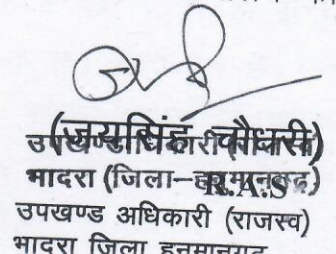 (जयसिंह चौधरी)
उपखण्ड अधिकारी (राजस्व)
R.A.S
भादरा (जिला-हनुमानगढ़)
उपखण्ड अधिकारी (राजस्व)
भादरा जिला हनुमानगढ़